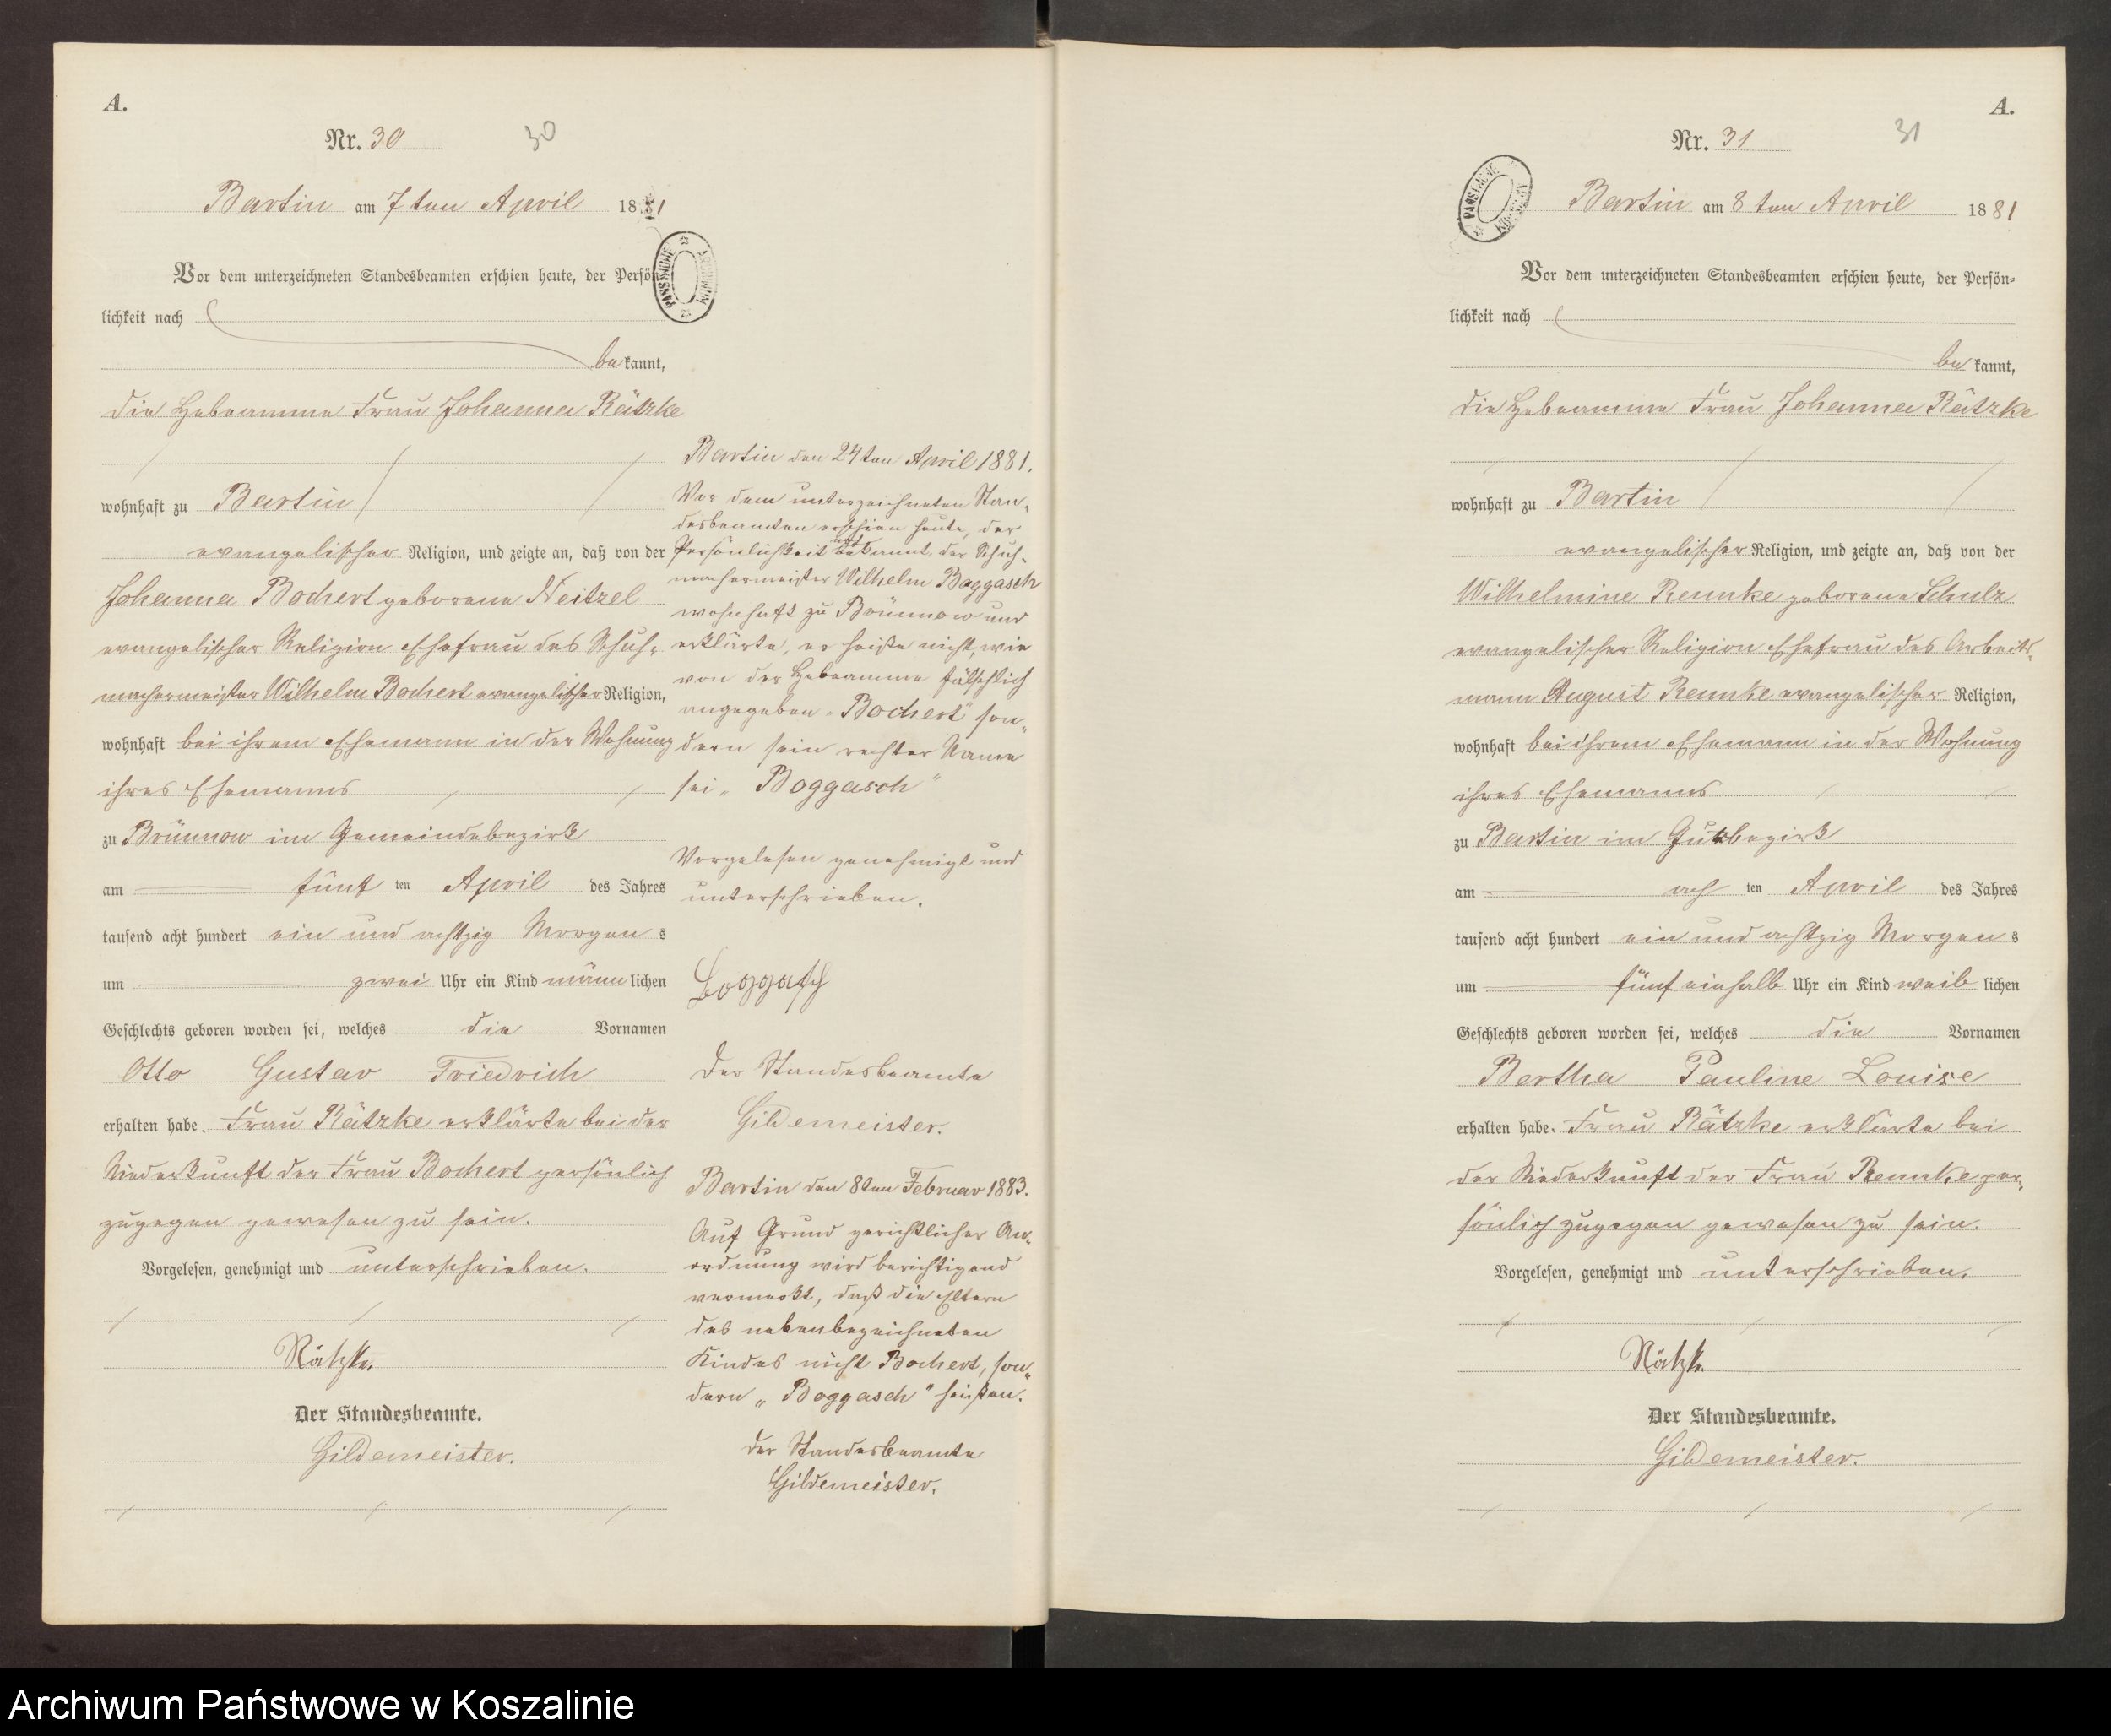 A.
Nr. 30
30
Bartin am 7ten April 1881
Vor dem unterzeichneten Standesbeamten erschien heute, der Persön
lichkeit nach
bekannt,
die Hebeamme Frau Johanna Rätzke
wohnhaft zu Bartin
evangelischer Religion, und zeigte an, daß von der
Johanna Bochert geborene Neitzel
evangelischer Religion Ehefrau des Schuh-
machermeister Wilhelm Bochert evangelischer Religion,
wohnhaft bei ihrem Ehemann in der Wohnung
ihres Ehemanns
zu Brünnow im Gemeindebezirk
am fünf ten April des Jahres
tausend acht hundert ein und achtzig Morgens
um zwei Uhr ein Kind männlichen
Geschlechts geboren worden sei, welches die Vornamen
Otto Gustav Friedrich
erhalten habe. Frau Rätzke erklärte bei der
Niederkunft der Frau Bochert persönlich
zugegen gewesen zu sein.
Vorgelesen, genehmigt und unterschrieben.
Rätzke.
Der Standesbeamte.
Gildemeister.
PAŃSTWOWE ARCHIWUM
Bartin den 24ten April 1881.
Vor dem unterzeichneten Stan-
desbeamten erschien heute, der
Persönlichkeit nach bekannt, der Schuh-
machermeister Wilhelm Boggasch
wohnhaft zu Brünnow und
erklärte, er heiße nicht, wie
von der Hebeamme fälschlich
angegeben „Bochert" son-
dern sein rechter Name
sei „Boggasch"
Vorgelesen genehmigt und
unterschrieben.
Boggasch
Der Standesbeamte
Gildemeister.
Bartin den 8ten Februar 1883.
Auf Grund gerichtlicher An-
ordnung wird berichtigend
vermerkt, daß die Eltern
des nebenbezeichneten
Kindes nicht Bochert, son-
dern „Boggasch" heißen.
Der Standesbeamte
Gildemeister.
A.
Nr. 31
31
PAŃSTWOWE
Bartin am 8ten April 1881
Vor dem unterzeichneten Standesbeamten erschien heute, der Persön-
lichkeit nach
bekannt,
die Hebeamme Frau Johanna Rätzke
wohnhaft zu Bartin
evangelischer Religion, und zeigte an, daß von der
Wilhelmine Remnke geborene Schulz
evangelischer Religion Ehefrau des Arbeits-
mann August Remnke evangelischer Religion,
wohnhaft bei ihrem Ehemann in der Wohnung
ihres Ehemanns
zu Bartin im Gutsbezirk
am ach ten April des Jahres
tausend acht hundert ein und achtzig Morgens
um fünf einhalb Uhr ein Kind weiblichen
Geschlechts geboren worden sei, welches die Vornamen
Bertha Pauline Louise
erhalten habe. Frau Rätzke erklärte bei
der Niederkunft der Frau Remnke per-
sönlich zugegen gewesen zu sein.
Vorgelesen, genehmigt und unterschrieben.
Rätzke
Der Standesbeamte.
Gildemeister.
Archiwum Państwowe w Koszalinie